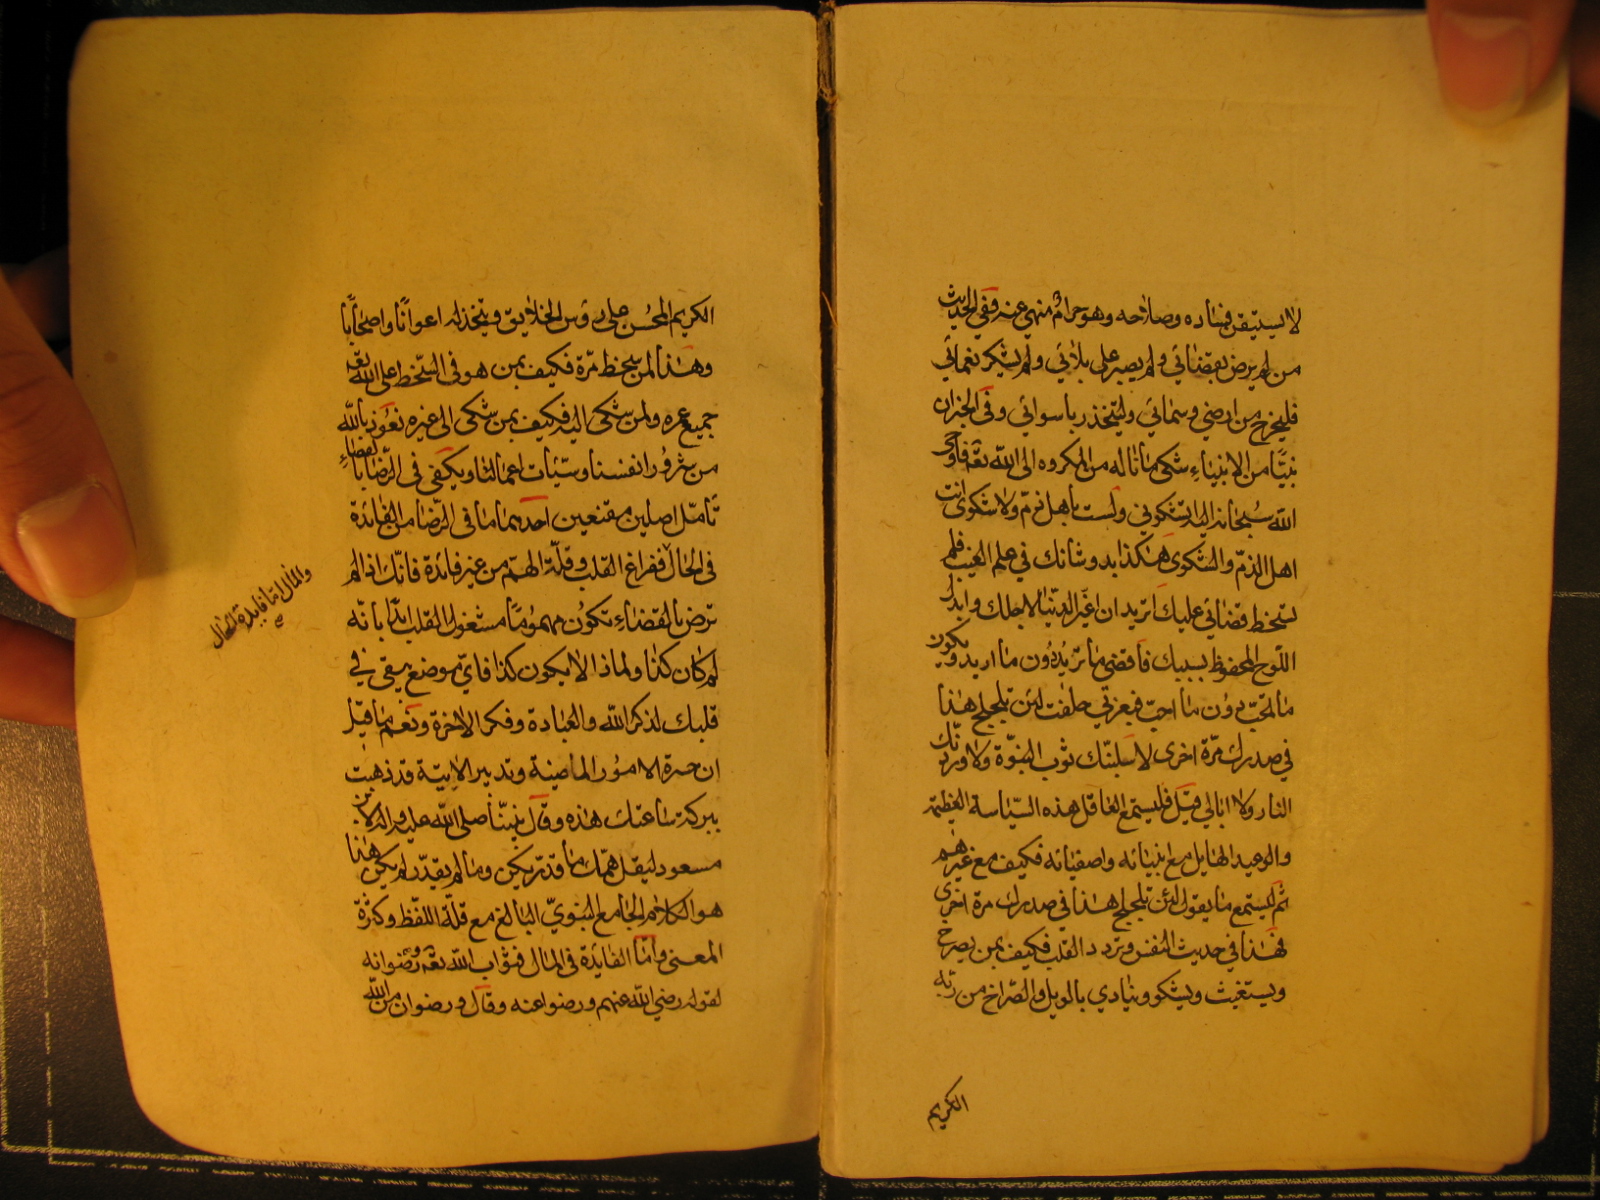 لا يستيقن فساده وصلاحه وهو حرام منهي عنه ففي الحديث
من لم يرض بقضائي ولم يصبر على بلائي ولم يشكر نعمائي
فليخرج من ارضي وسمائي وليتخذ ربا سوائي وفي الخبر ان
نبيّا من الانبياء شكى ما ناله من المكروه الى الله تعه فاوحى
الله سبحانه اليه اتشكوني ولست باهل ذمّ ولا شكوى انت
اهل الذمّ والشكوى هكذا بدو شانك في علم الغيب فلم
تسخط قضائي عليك اتريد ان اغيّر الدنيا لاجلك وابدل
اللوح المحفوظ بسببك فاقضى ما تريد دون ما اريد ويكون
ما تحبّ دون ما احبّ فبعزتي حلفت لئن تلجلج هذا
في صدرك مرّة اخرى لاسلبنّك ثوب النبوّة ولاوردنّك
النار ولا ابالي قيل فليستمع العاقل هذه السّياسة العظيمة
والوعيد الهايل مع انبيائه واصفيائه فكيف مع غيرهم
ثم ليستمع ما يقول لئن تلجلج هذا في صدرك مرة اخرى
فهذا في حديث النفس وتردد القلب فكيف بمن يصرخ
ويستغيث ويشكو وينادي بالويل والصّراخ من ربّه
الكريم
الكريم المحسن على رؤس الخلايق ويتخذ له اعوانًا واصحابًا
وهذا لمن سخط مرّة فكيف بمن هو في السّخط على الله تعه
جميع عمره ولمن شكى اليه فكيف بمن شكى الى غيره نعوذ بالله
من شرور انفسنا وسيّئات اعمالنا ويكفي في الرضا بالقضاء
تامّل اصلين مقنعين احدهما ما في الرّضا من الفائدة
في الحال ففراغ القلب وقلّة الهمّ من غير فائدة فانّك اذا لم
والمال امّا فايدة الحال
ترض بالقضاء تكون مهمومًا مشغول القلب ابدًا بانّه
لم كان كذا ولماذا لا يكون كذا فايّ موضع يبقى في
قلبك لذكر الله والعبادة وفكر الاخرة ونعم ما قيل
ان حسرة الامور الماضية وتدبير الاتية قد ذهبت
ببركة ساعتك هذه وقال نبيّنا صلى الله عليه واله لابن
مسعود ليقل همّك ما قدّر يكن وما لم يقدّر لم يكن هذا
هو الكلام الجامع النبويّ البالغ مع قلّة اللفظ وكثرة
المعنى وامّا الفائدة في المال فثواب الله تعه ورضوانه
لقوله رضي الله عنهم ورضوا عنه وقال ورضوان من الله